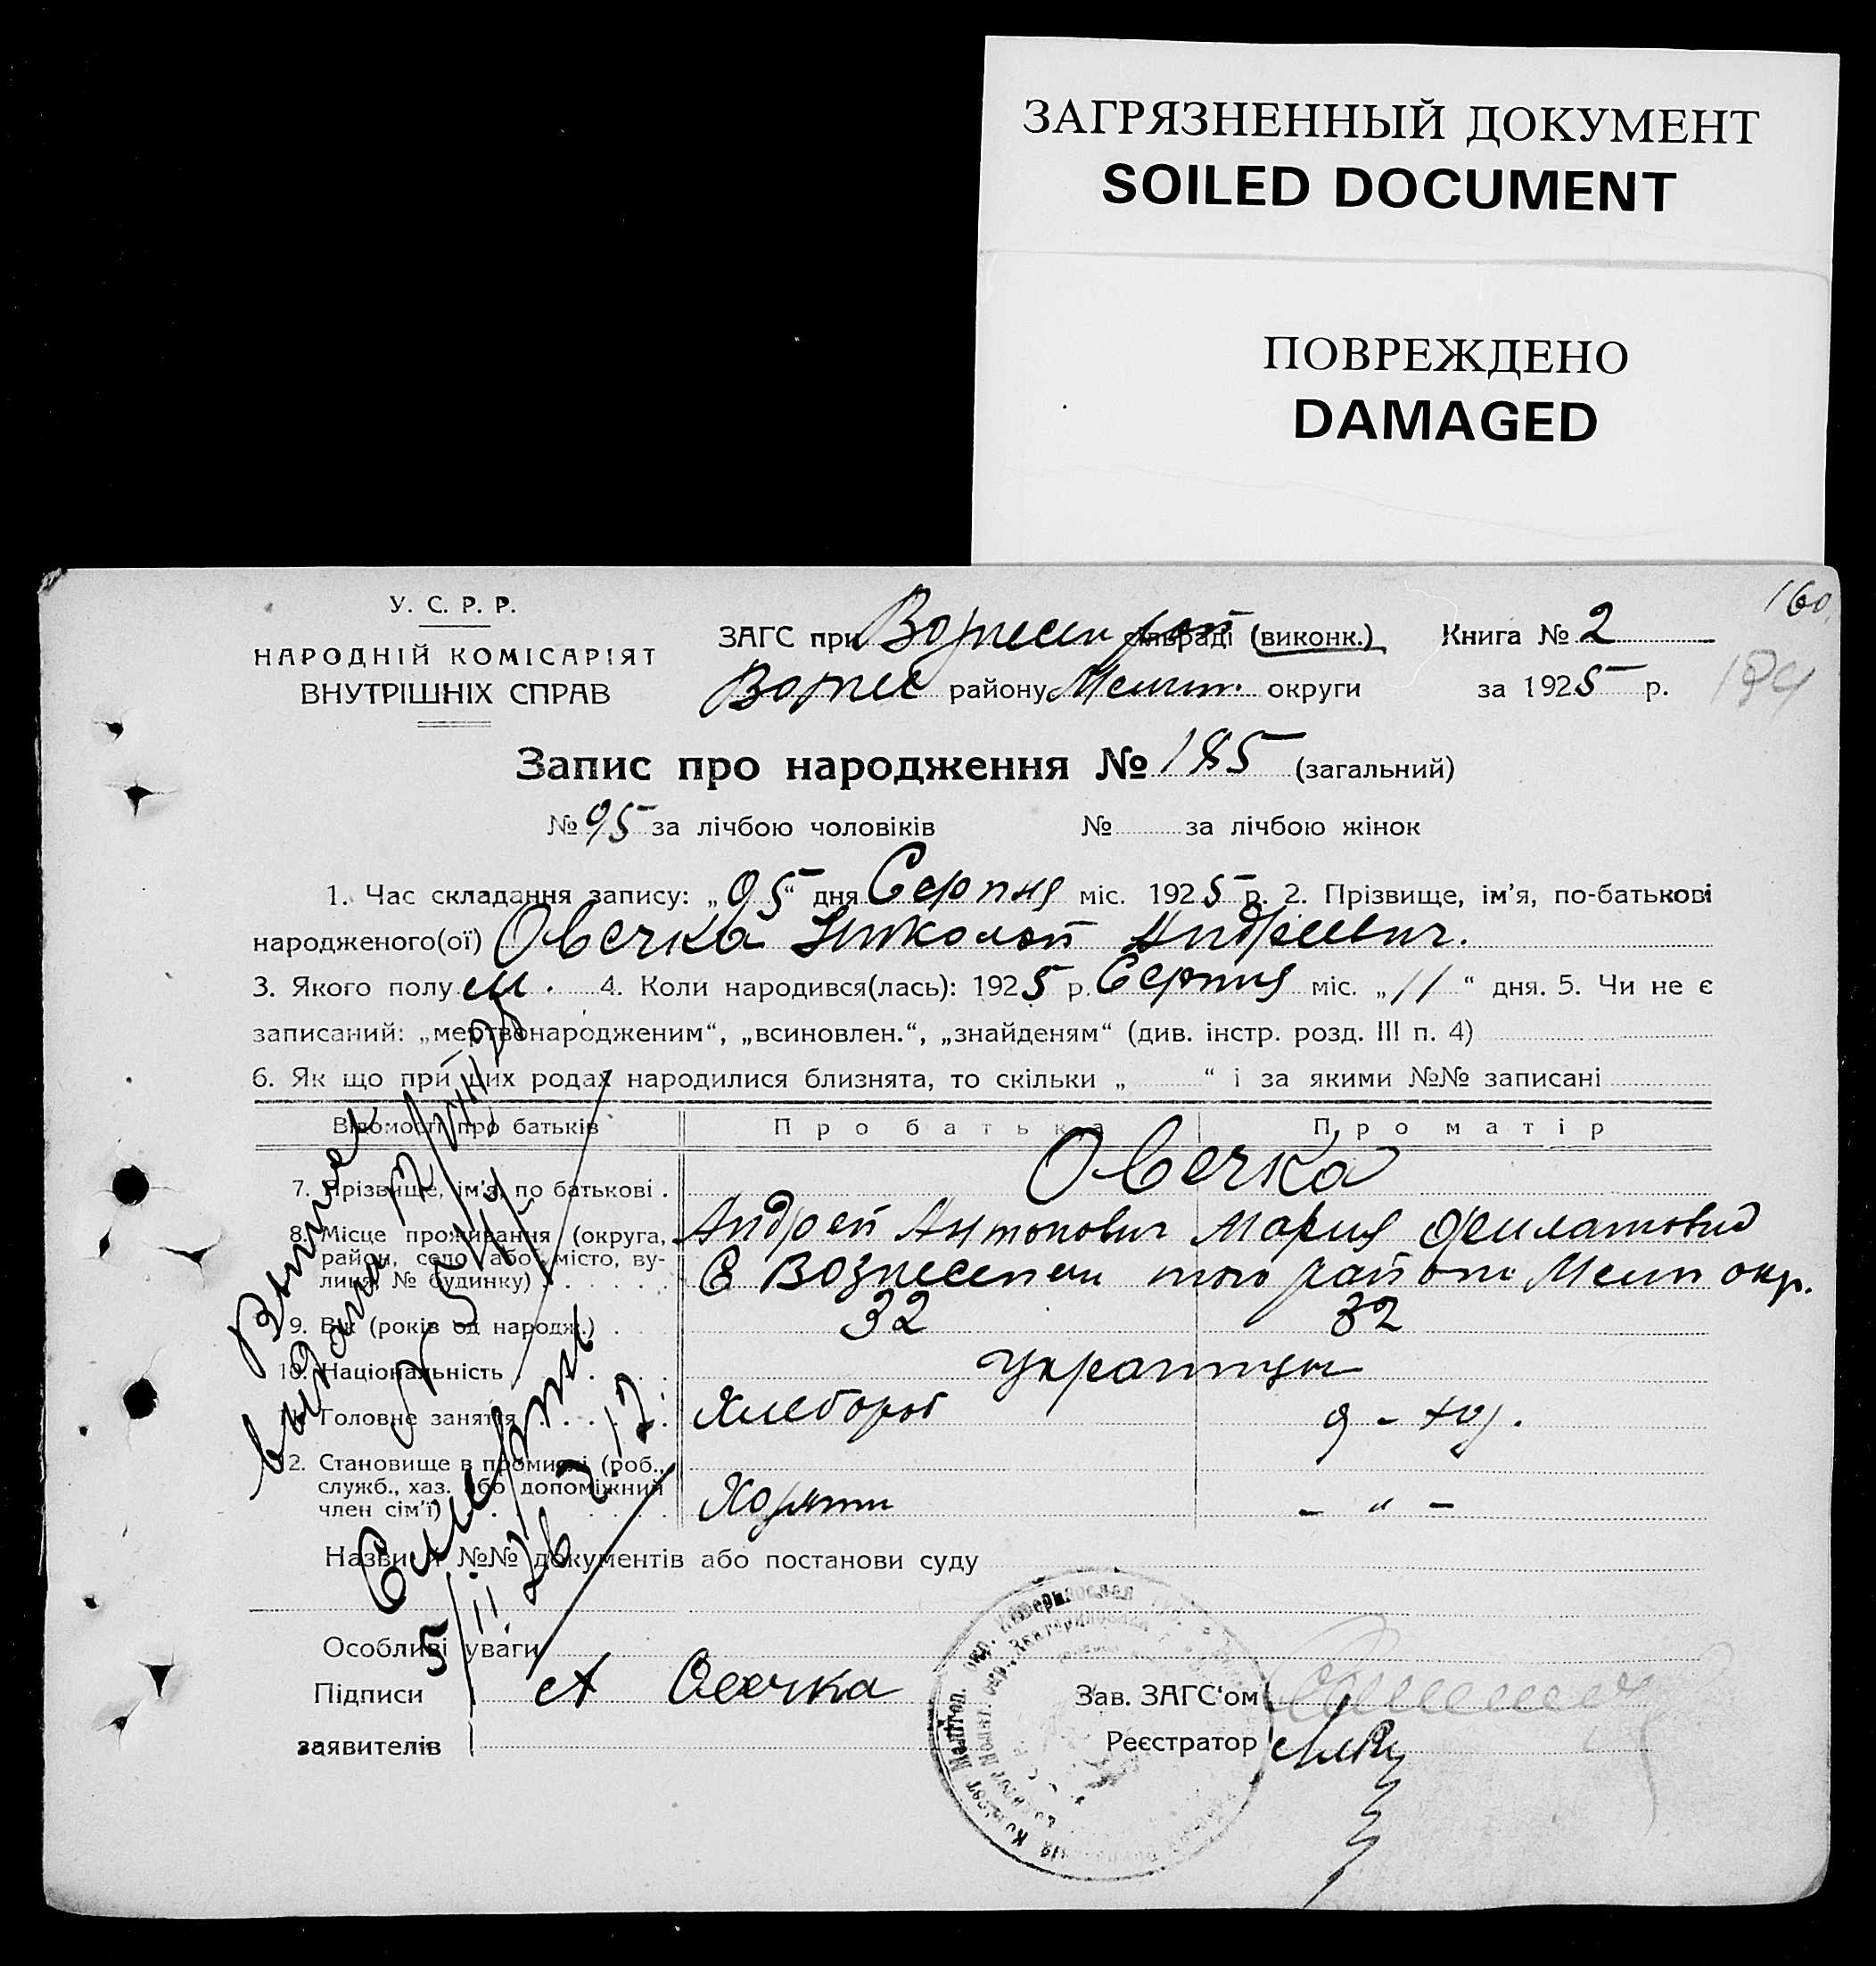 ЗАГРЯЗНЕННЫЙ ДОКУМЕНТ
SOILED DOCUMENT
ПОВРЕЖДЕНО
DAMAGED
160
У. С. Р. Р.
НАРОДНІЙ КОМІСАРІЯТ
ВНУТРІШНІХ СПРАВ
ЗАГС при Вознесен рай сільраді (виконк.) Книга № 2
Вознес району Мелит. округи за 1925 р.
184
Запис про народження № 185 (загальний)
№ 95 за лічбою чоловіків № за лічбою жінок
1. Час складання запису: „ “ дня Серпня міс. 1925 р. 2. Прізвище, ім’я, по-батькові
народженого(ої) Овечка Николай Андреевич.
3. Якого полу м. 4. Коли народився(лась): 1925 р. Серпня міс. „11“ дня. 5. Чи не є
записаний: „мертвонародженим“, „всиновлен.“, „знайденям“ (див. інстр. розд. III п. 4)
6. Як що при цих родах народилися близнята, то скільки „ “ і за якими №№ записані
Відомості про батьків Про батька Про матір
7. Прізвище, ім’я, по батькові . Овечка
Андрей Антонович Мария Филатовна
8. Місце проживання (округа,
район, село або місто, ву-
лиця, № будинку) С Вознесенки того району Мелит окр.
9. Вік (років од народж.) 32 32
10. Національність украинцы
11. Головне заняття Хлебороб д - хоз.
12. Становище в промислі (роб.,
служб., хаз. або допоміжний
член сім’ї) Хозяин - " -
Назви й №№ документів або постанови суду
Особливі уваги
Підписи А Овечка Зав. ЗАГС‘ом
заявителів Реєстратор
Выпись
выдана
Смерть
5/II 26